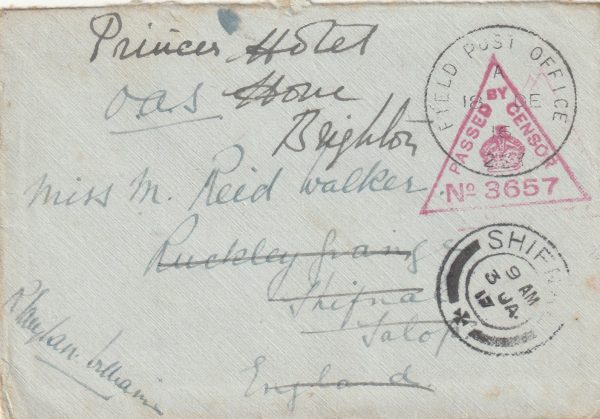 Princes Hotel
OAS Hove
Brighton
Miss M. Reid Walker
Ruckley Grange
Shifnal
Salop
England
FIELD POST OFFICE
A
18 DE
PASSED BY CENSOR
No 3657
SHIF
9 AM
3 JA
17